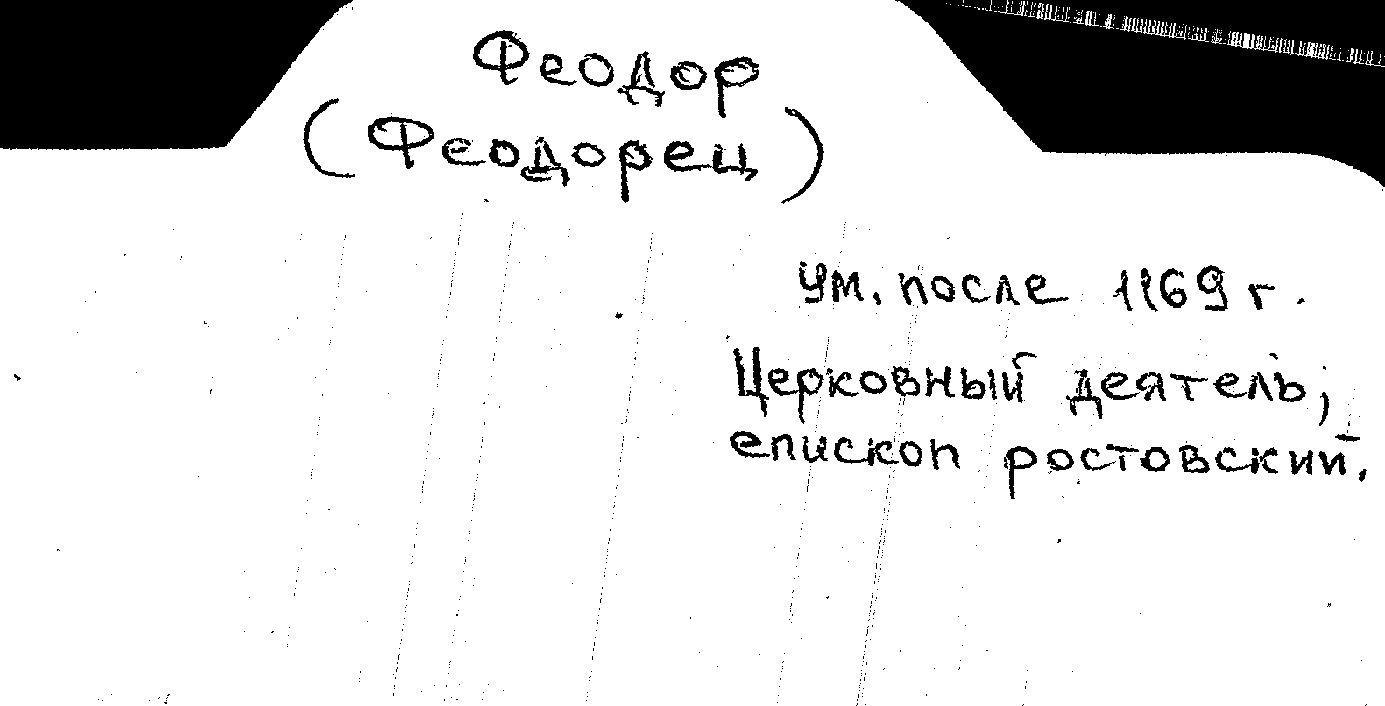 Феодор
(Феодорец)
ум. после 1169 г.
Церковный деятель,
епископ ростовский.